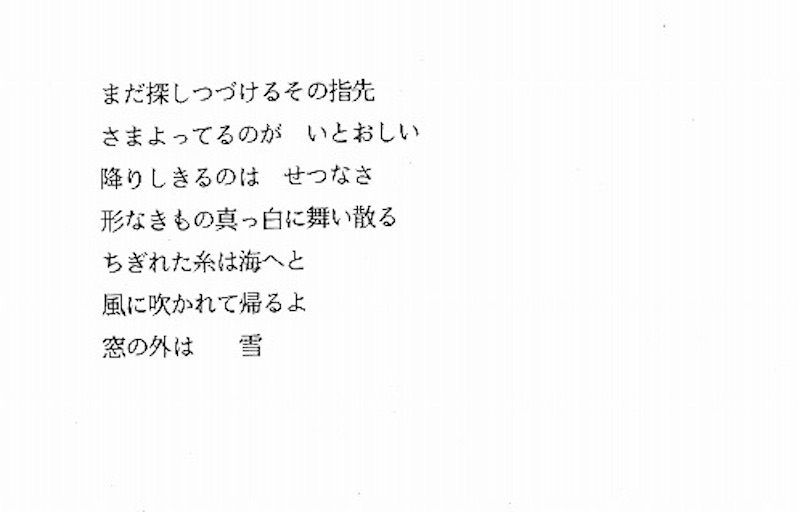 まだ探しつづけるその指先
さまよってるのが　いとおしい
降りしきるのは　せつなさ
形なきもの真っ白に舞い散る
ちぎれた糸は海へと
風に吹かれて帰るよ
窓の外は　　雪